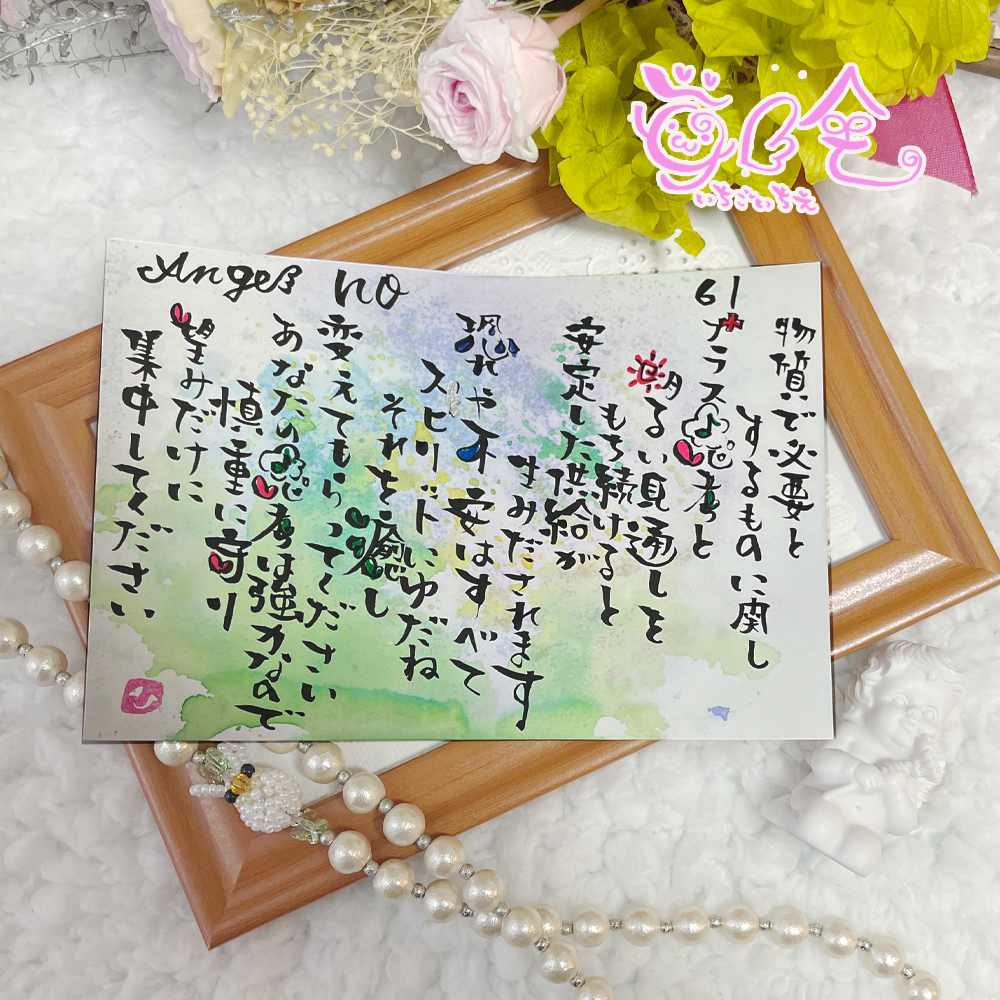 Angel no 61
物質で必要と
するものに関し
プラス思考と
明るい見通しを
もち続けると
安定した供給が
生みだされます
恐れや不安はすべて
スピリットにゆだね
それを癒し
変えてもらってください
あなたの思考は強力なので
慎重に守り
望みだけに
集中してください
いちごいちえ